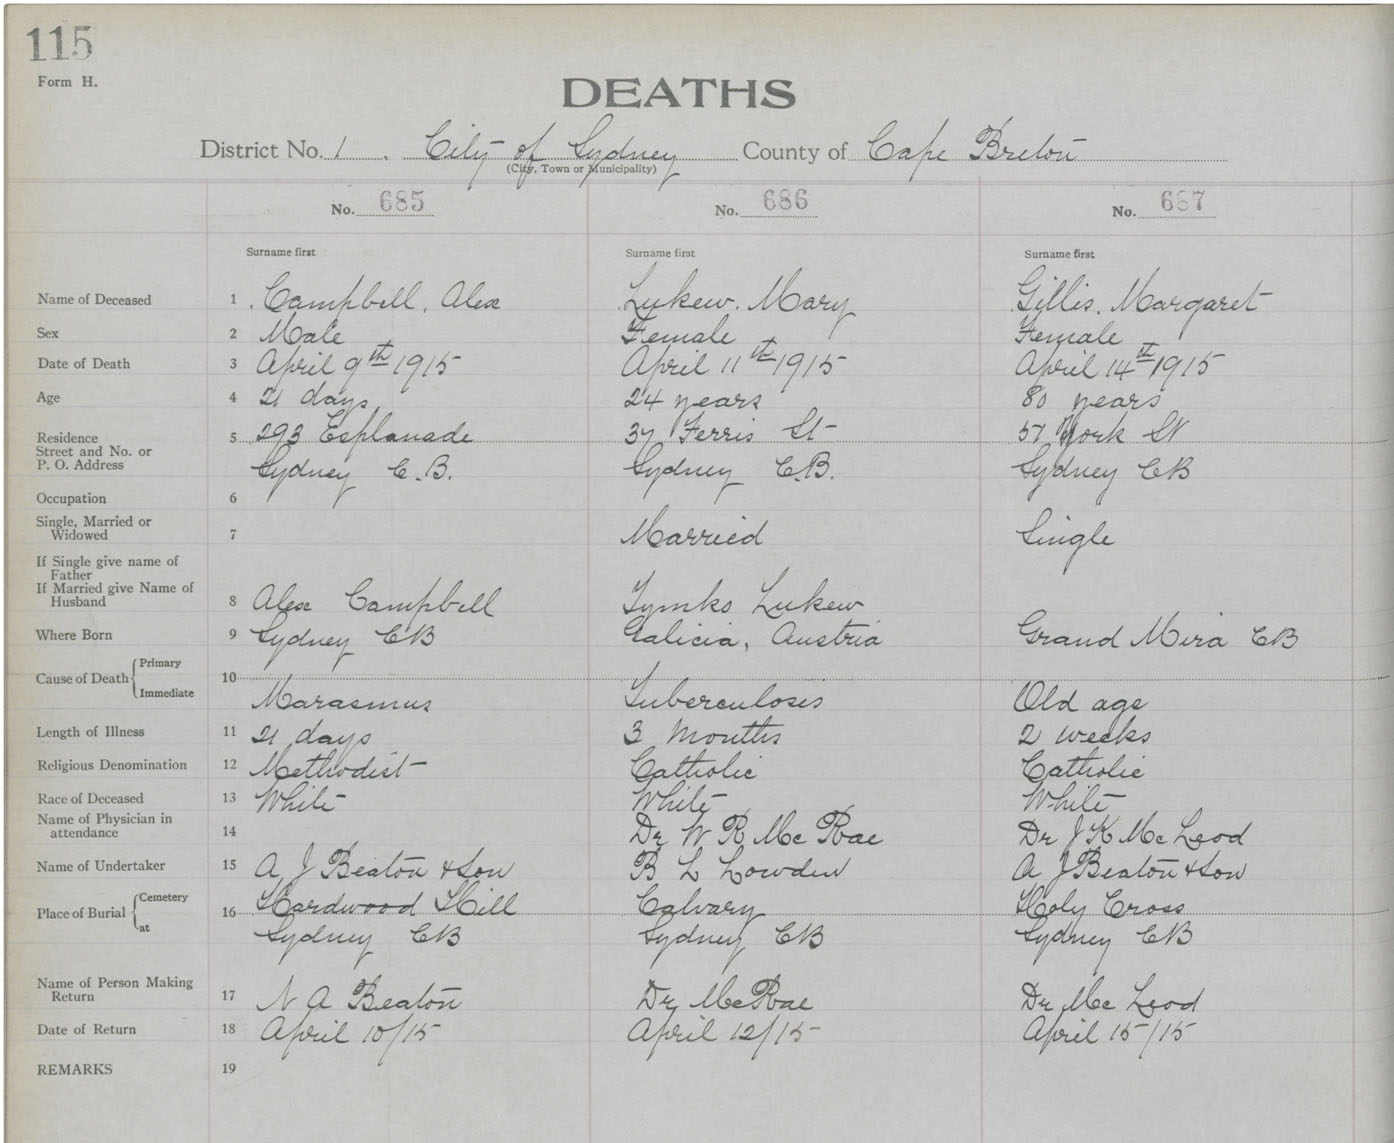 115
Form H.
DEATHS
District No. 1. City of Sydney County of Cape Breton
(City, Town or Municipality)
No. 685 No. 686 No. 687
Surname first Surname first Surname first
Name of Deceased 1 Campbell, Alex Lukew. Mary Gillis, Margaret
Sex 2 Male Female Female
Date of Death 3 April 9th 1915 April 11th 1915 April 14th 1915
Age 4 21 days 24 years 80 years
Residence 5 293 Esplanade 37 Ferris St 57 York St
Street and No. or
P. O. Address Sydney C.B. Sydney C.B. Sydney CB
Occupation 6
Single, Married or
Widowed 7 Married Single
If Single give name of
Father
If Married give Name of
Husband 8 Alex Campbell Tymko Lukew
Where Born 9 Sydney CB Galicia, Austria Grand Mira CB
Cause of Death Primary 10
Immediate Marasmus Tuberculosis Old age
Length of Illness 11 21 days 3 Months 2 weeks
Religious Denomination 12 Methodist Catholic Catholic
Race of Deceased 13 White White White
Name of Physician in
attendance 14 Dr W R McRae Dr J K McLeod
Name of Undertaker 15 A J Beaton & Son B L Lowden A J Beaton & Son
Place of Burial Cemetery 16 Hardwood Hill Calvary Holy Cross
at Sydney CB Sydney CB Sydney CB
Name of Person Making
Return 17 N A Beaton Dr McRae Dr McLeod
Date of Return 18 April 10/15 April 12/15 April 15/15
REMARKS 19